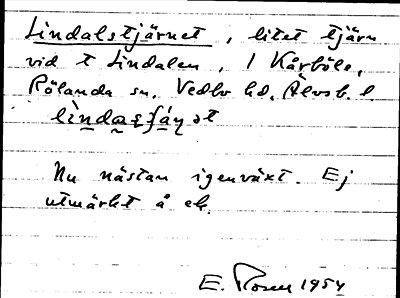 Lindalstjärnet, litet tjärn
vid t Lindalen, 1 Kårböle,
Rölanda sn. Vedbo hd. Älvsb. l.
Nu nästan igenväxt. Ej
utmärkt å ek.
E. Rosen 1954